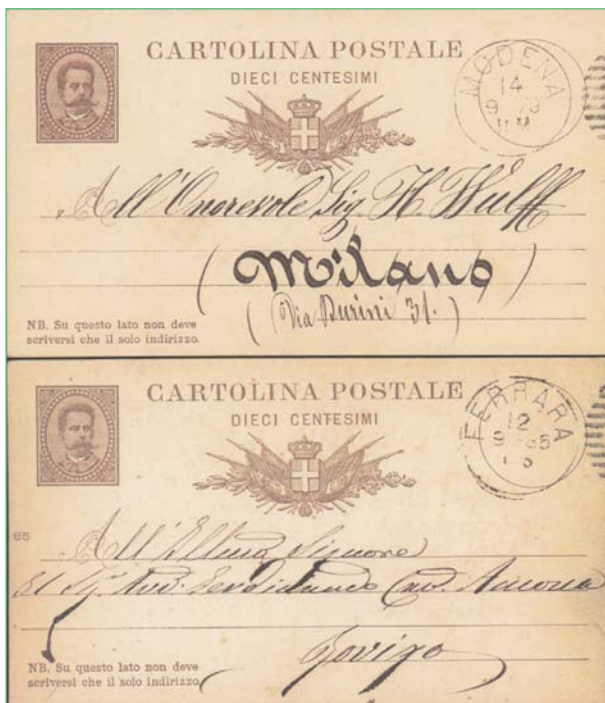 CARTOLINA POSTALE
DIECI CENTESIMI
MODENA
14
9
11 M
All'Onorevole Sig. H. Wulff
(Milano)
(Via Durini 31.)
NB. Su questo lato non deve
scriversi che il solo indirizzo.
CARTOLINA POSTALE
DIECI CENTESIMI
FERRARA
12
65
All'Illmo Signore
Il Sig. Avv. Cav. Ancona
Rovigo
NB. Su questo lato non deve
scriversi che il solo indirizzo.